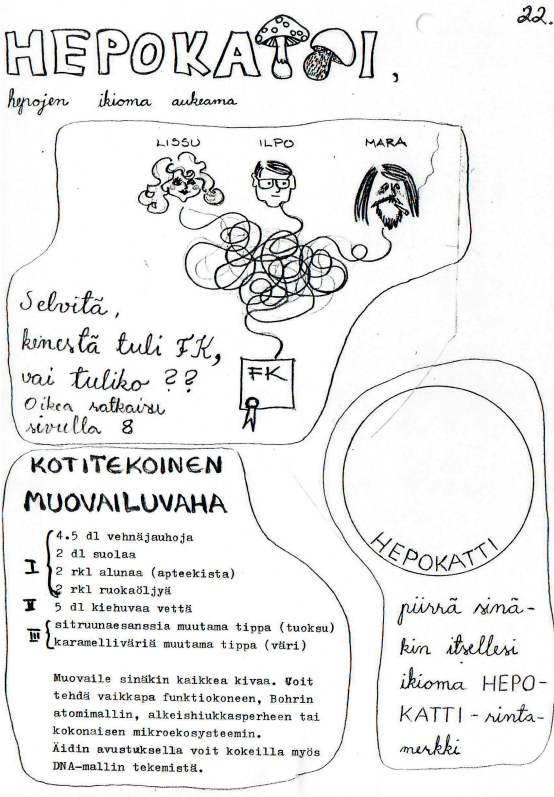 22.
HEPOKATTI,
hepojen ikioma aukeama
LISSU ILPO MARA
Selvitä,
kenestä tuli FK,
vai tuliko ??
Oikea ratkaisu
sivulla 8
FK
KOTITEKOINEN
MUOVAILUVAHA
I
4.5 dl vehnäjauhoja
2 dl suolaa
2 rkl alunaa (apteekista)
2 rkl ruokaöljyä
II 5 dl kiehuvaa vettä
III
sitruunaesanssia muutama tippa (tuoksu)
karamelliväriä muutama tippa (väri)
Muovaile sinäkin kaikkea kivaa. Voit
tehdä vaikkapa funktiokoneen, Bohrin
atomimallin, alkeishiukkasperheen tai
kokonaisen mikroekosysteemin.
Äidin avustuksella voit kokeilla myös
DNA-mallin tekemistä.
HEPOKATTI
piirrä sinä-
kin itsellesi
ikioma HEPO-
KATTI-rinta-
merkki